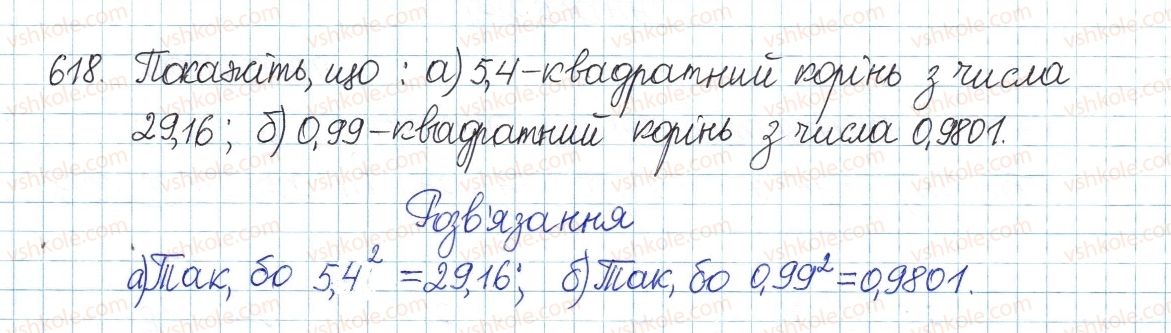 618. Покажіть, що : а) 5,4-квадратний корінь з числа
29,16; б) 0,99-квадратний корінь з числа 0,9801.
Розв'язання
а) Так, бо 5,4² = 29,16; б) Так, бо 0,99² = 0,9801.